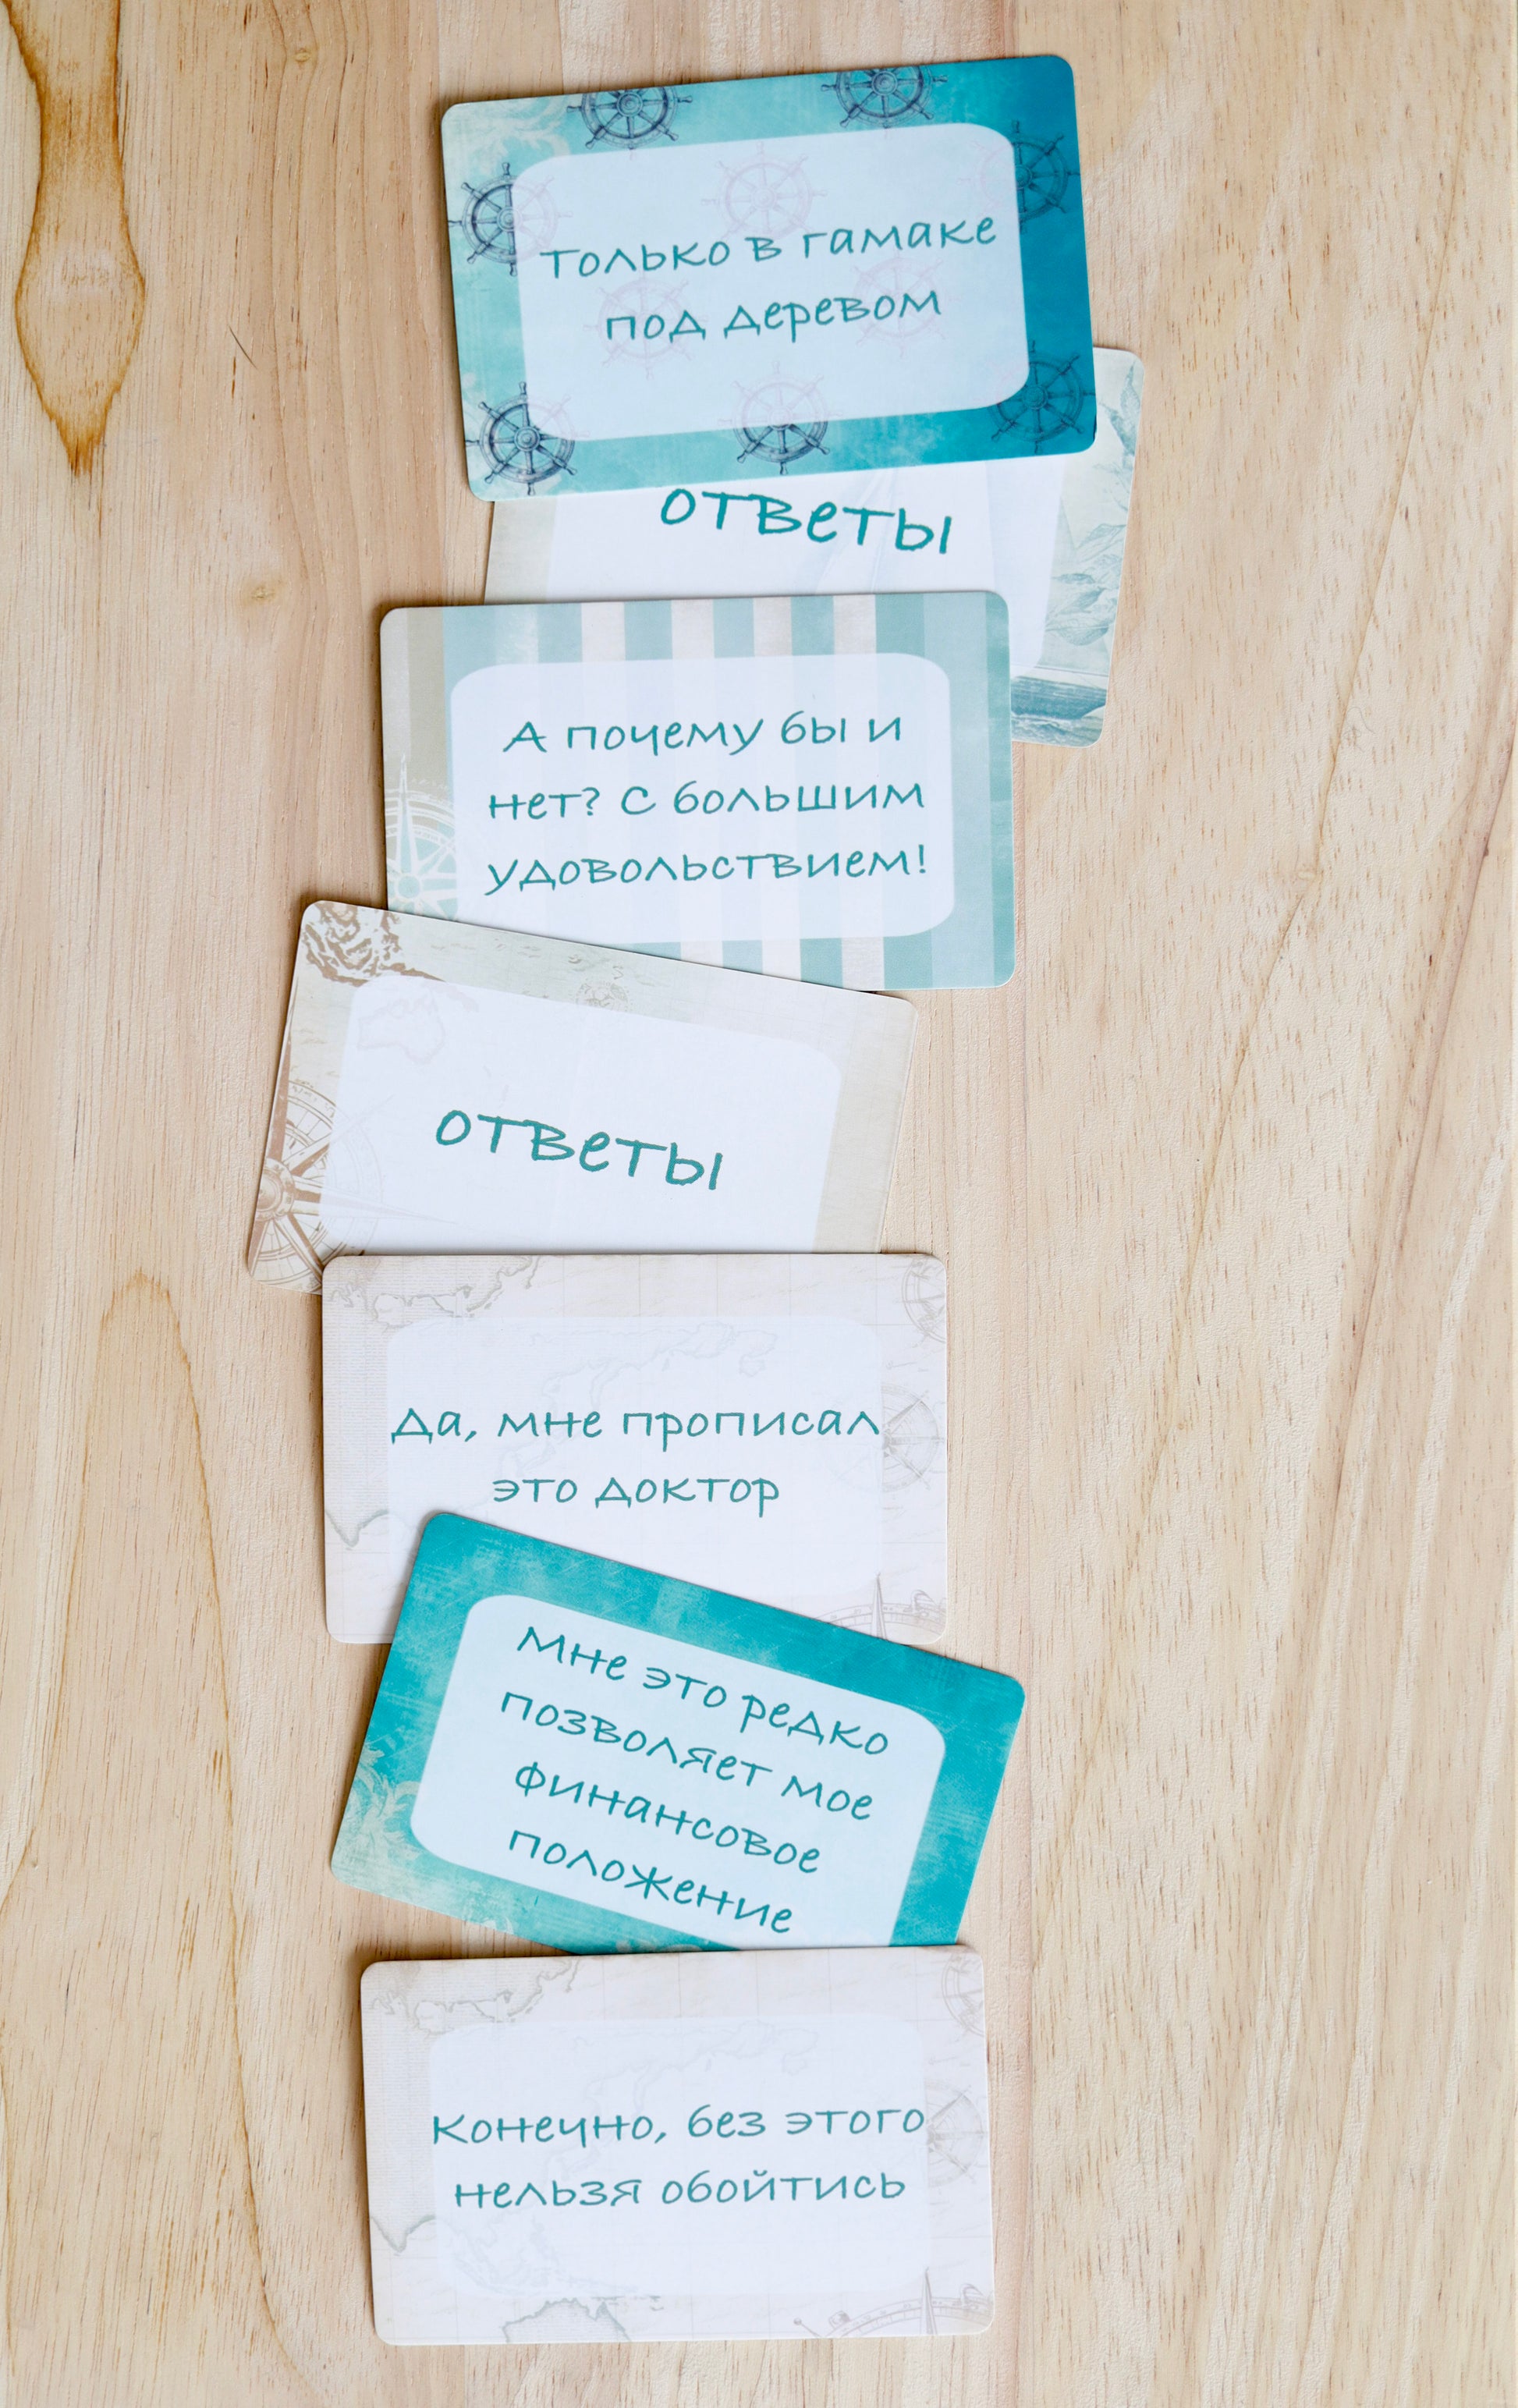 только в гамаке
под деревом
ответы
А почему бы и
нет? С большим
удовольствием!
ответы
Да, мне прописал
это доктор
Мне это редко
позволяет мое
финансовое
положение
Конечно, без этого
нельзя обойтись